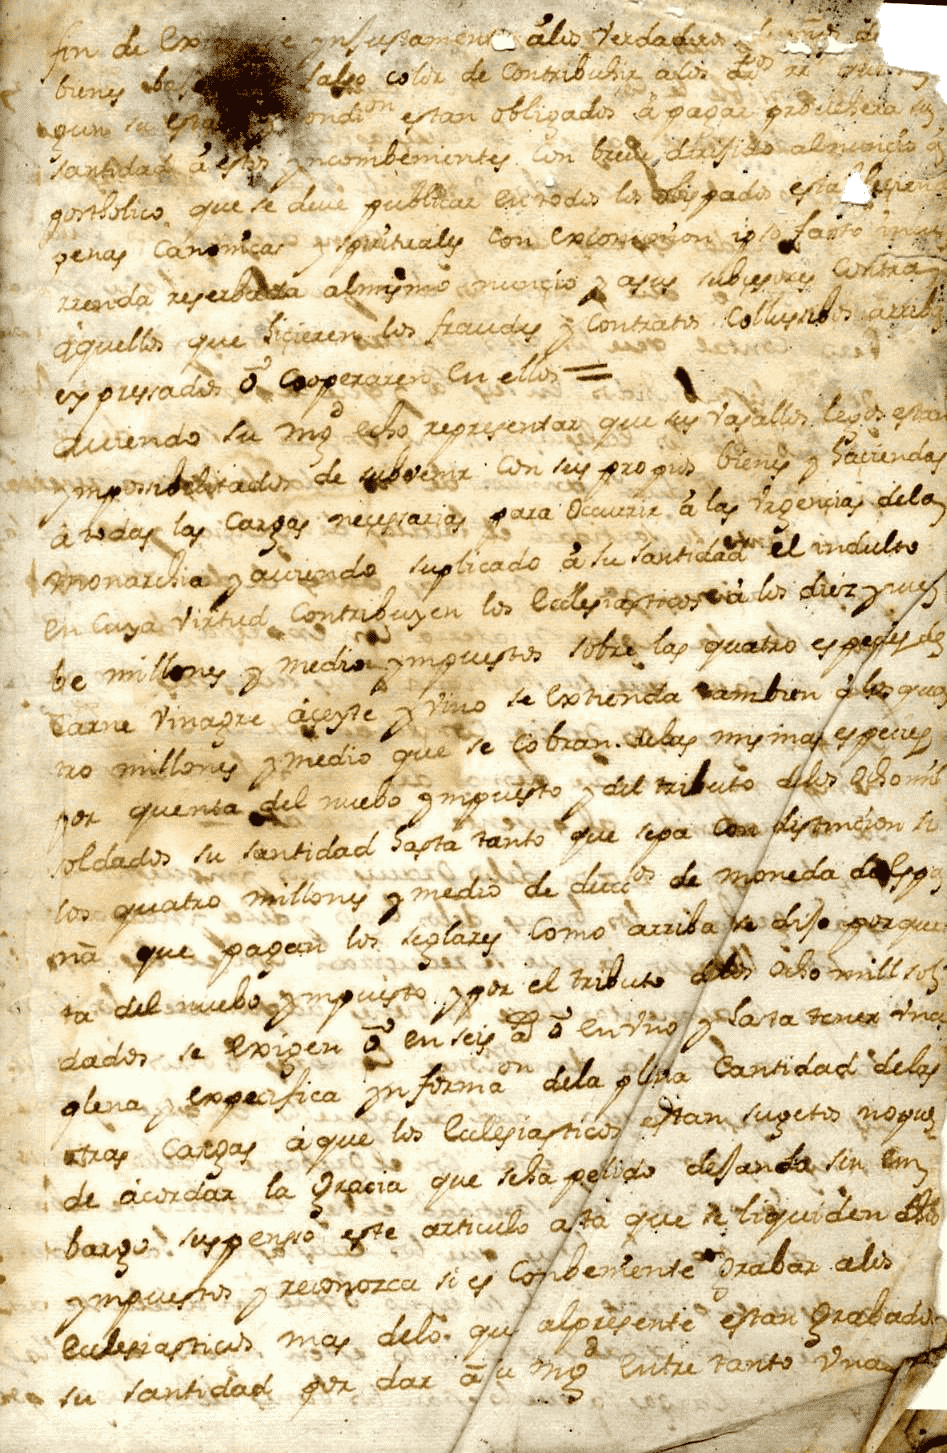 fin de ynjustamente á los Verdaderos dueños de
bienes falso color de Contribuhir a los dros rs
estan obligados á pagar probehera su
santidad á estos yncombenientes Con breve dirijido al nuncio a
postholico que se deve publicar en todos los obispados estableciend
penas Canonicas y spirituales con excomunion ipso facto
rrenda reserbada al mismo nuncio y a sus subcesores Contra
áquellos que hicieren los fraudes y Contratos Collusibos arriba
expressados ó Cooperaren en ellos =
aviendo su Mgd echo representar que sus Vasallos legos estan
ymposibilitados de subvenir Con sus propios bienes y haciendas
á todas las Cargas necessarias para Ocurrir á las Vrgencias dela
monarchia y aviendo suplicado á su santidad el indulto
en Cuya Virtud Contribuyen los Ecclesiasticos á los diez y nue
be millones y medio ympuestos sobre las quatro especies de
Carne Vinagre áceyte y Vino se extienda tambien á los qua
tro millones y medio que se Cobran delas mismas especies
por quenta del nuebo ympuesto y del tributo delos Ocho mil
soldados su santidad hasta tanto que sepa Con distincion si
los quatro millones y medio de ducdos de moneda de Espa
ña que pagan los seglares Como arriba se dijo por quen
ta del nuebo ympuesto y por el tributo delos Ocho mill sol
dados se exigen ó en seis as ó en Vno y hasta tener Vna
plena y expecifica ynformaon dela plena Cantidad delas
otras Cargas á que los Eclesiasticos estan sugetos no pue
de ácordar la gracia que se ha pedido dejando sin em
bargo suspenso este articulo asta que se liquiden dhos
ympuestos y reconozca si es Conbeniente grabar a los
Eclesiasticos mas delo que al presente estan grabados
su santidad por dar á u Mgd entre tanto Vna